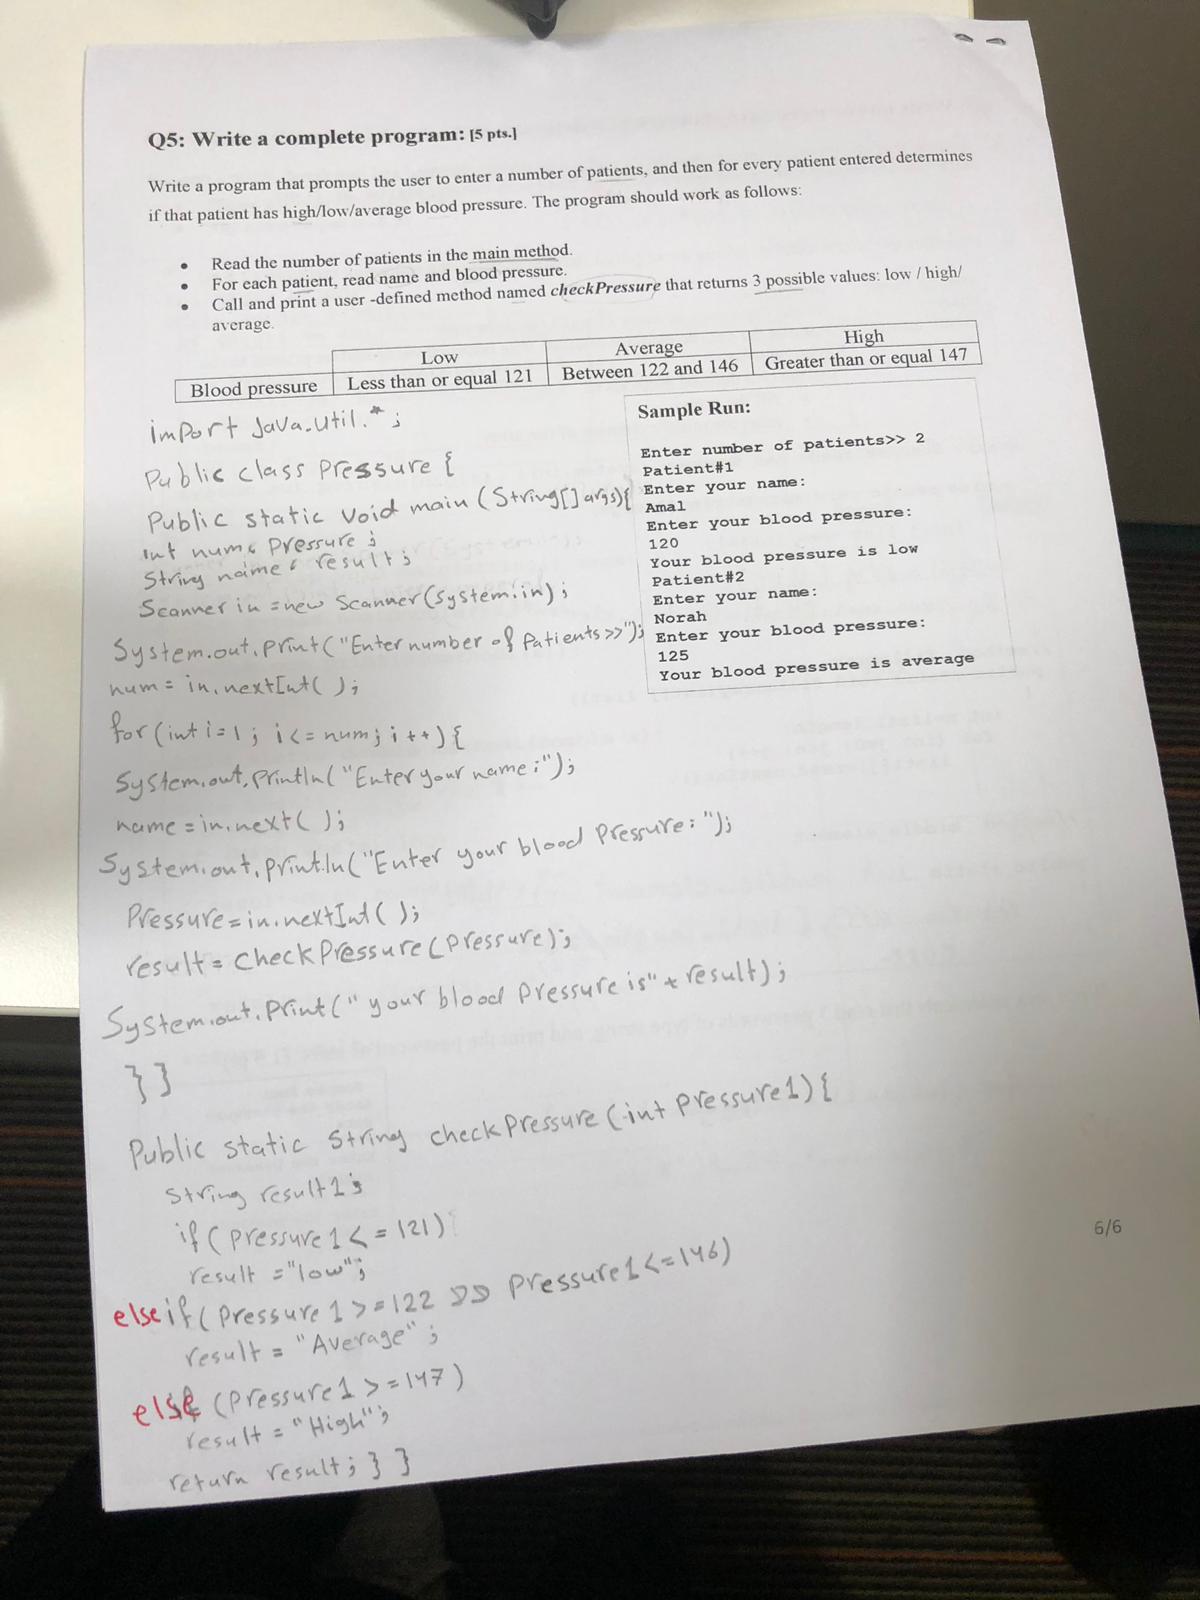 Q5: Write a complete program: [5 pts.]
Write a program that prompts the user to enter a number of patients, and then for every patient entered determines
if that patient has high/low/average blood pressure. The program should work as follows:
• Read the number of patients in the main method.
• For each patient, read name and blood pressure.
• Call and print a user -defined method named checkPressure that returns 3 possible values: low / high/
average.
Low Average High
Blood pressure Less than or equal 121 Between 122 and 146 Greater than or equal 147
Sample Run:
Enter number of patients>> 2
Patient#1
Enter your name:
Amal
Enter your blood pressure:
120
Your blood pressure is low
Patient#2
Enter your name:
Norah
Enter your blood pressure:
125
Your blood pressure is average
import Java.util.*;
Public class Pressure {
Public static Void main (String[] args){
int num, Pressure;
String name, result;
Scanner in = new Scanner(System.in);
System.out.Print("Enter number of Patients>>");
num = in.nextInt( );
for (int i=1; i<=num; i++){
System.out.Println("Enter your name:");
name = in.next( );
System.out.Println("Enter your blood Pressure:");
Pressure = in.nextInt( );
result = CheckPressure(Pressure);
System.out.Print("your blood Pressure is"+ result);
}}
Public static String checkPressure (int Pressure1){
String result1;
if (Pressure1 <= 121)
result = "low";
else if (Pressure1 >= 122 && Pressure1 <= 146)
result = "Average";
else (Pressure1 >= 147)
result = "High";
return result; } }
6/6